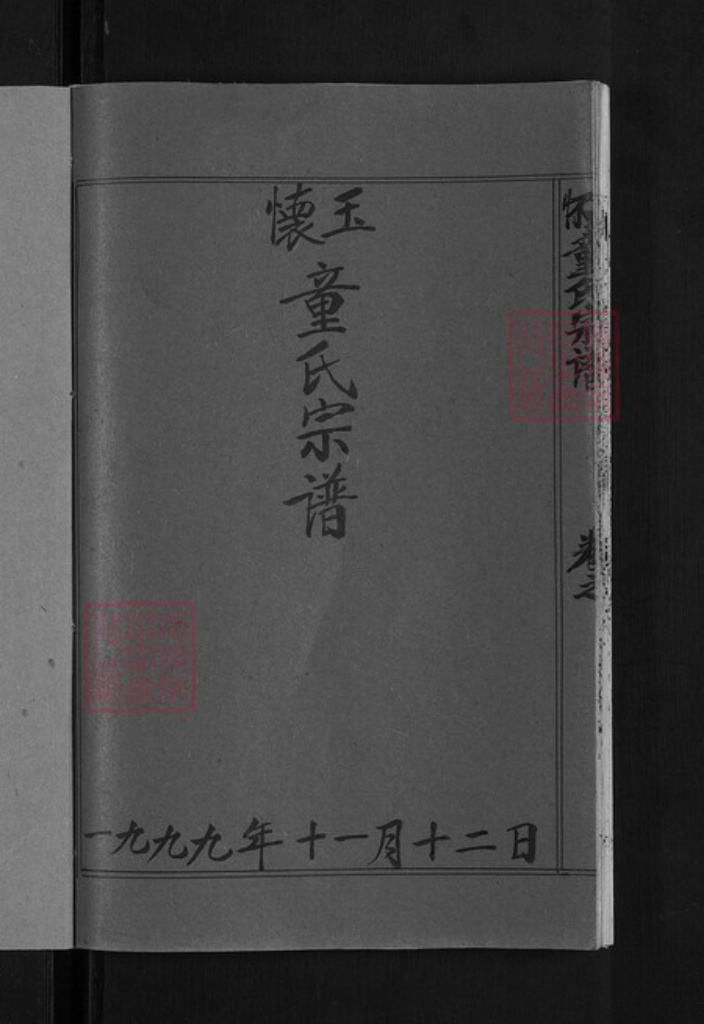 懷玉
童氏宗谱
一九九九年十一月十二日
怀童氏宗谱
卷之